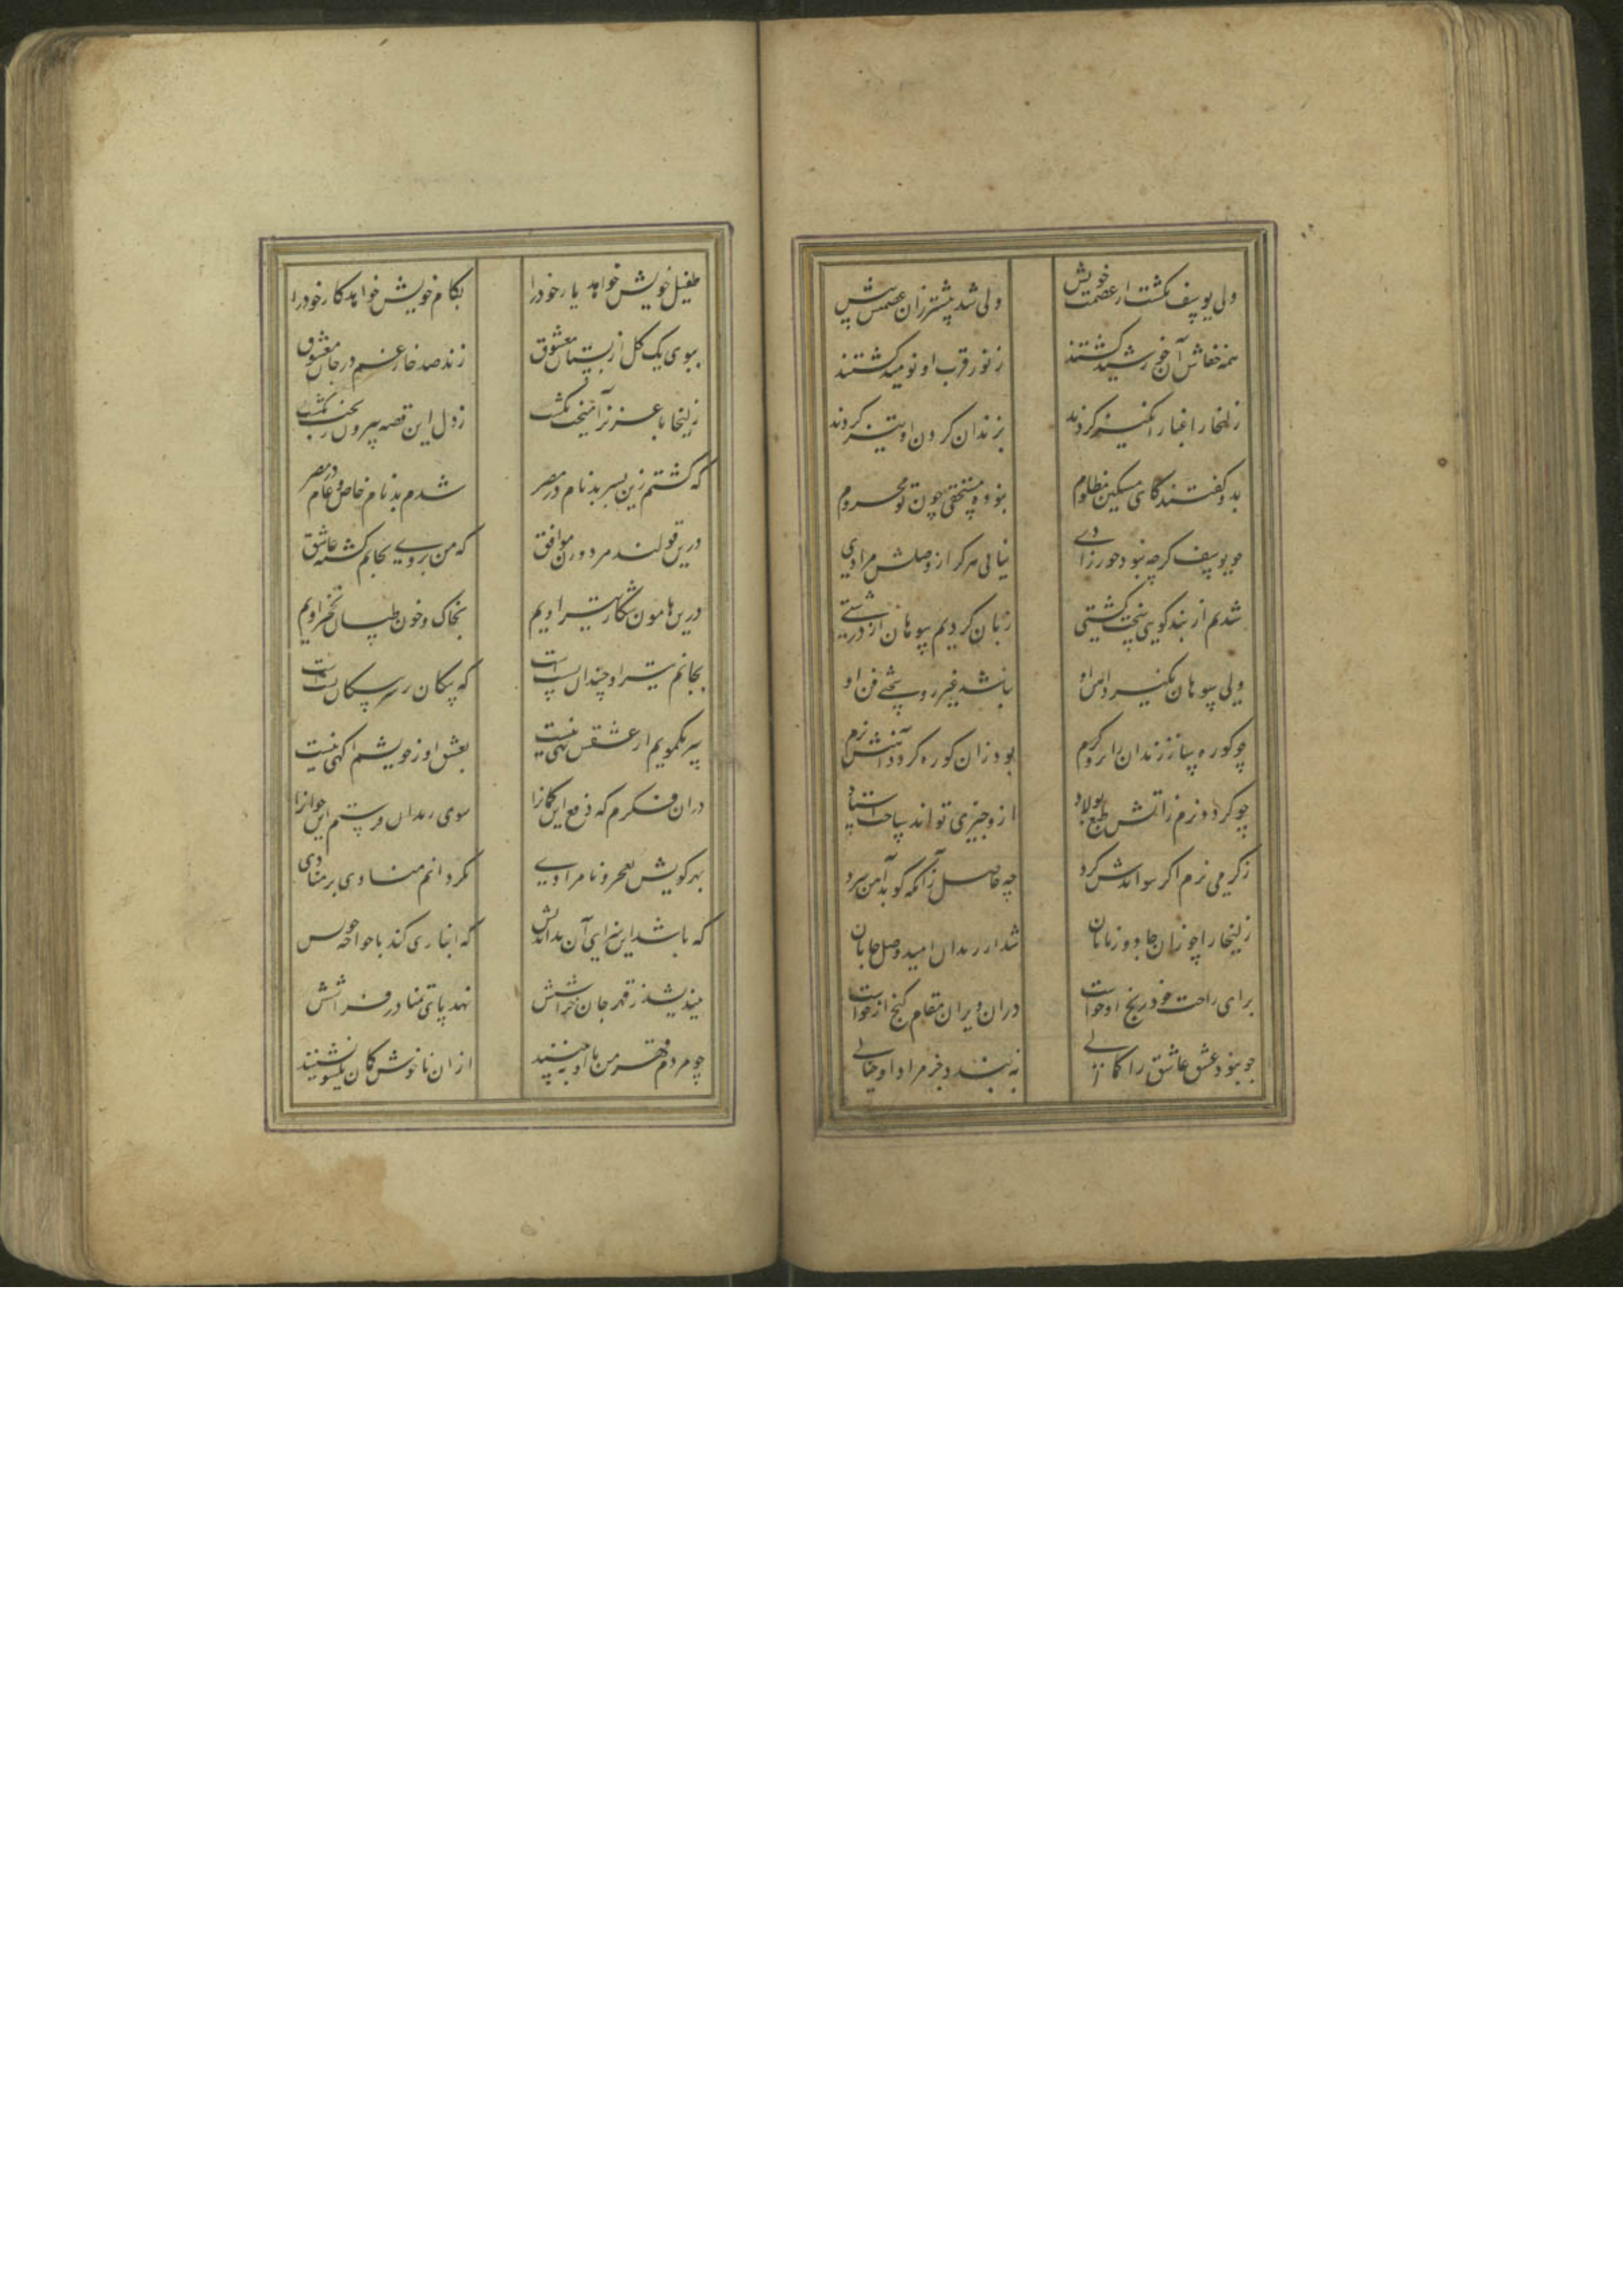 ولی یوسف نکشت از عصمت خویش ولی شد پیشتر زان عصمتش پیش
همه خفاش آن خورشید کشتند ز نور قرب او نومید کشتند
زلیخا را غبار انکیز کردند بزندان کردن او تیز کردند
بدو کفتند کای مسکین مظلوم نبوده مستحقی چون تو محروم
چو یوسف کرچه نبود حورزادی نیابی هرکز از وصلش مرادی
شدیم از پند کویی سخت کشتی زبان کردیم سوهان از درشتی
ولی سوهان نکیرد آهن او نباشد غیر روسختی فن او
چو کوره ساز زندان را برو کرم بود زان کوره کردد آهنش نرم
چو کردد نرم ز آتش طبع پولاد ازو چیزی تواند ساخت استاد
ز کرمی نرم اکر نتواندش کرد چه حاصل زانکه کوبد آهن سرد
زلیخا را چو زان جادو زبانان شد از زندان امید وصل جانان
برای راحت خود رنج او خواست دران ویران مقام کنج ازو خواست
چو نبود عشق عاشق را کمالی نه بندد جز مراد او خیالی
طفیل خویش خواهد یار خود را بکام خویش خواهد کار خود را
ببوی یک کل از بستان معشوق زند صد خار غم در جان معشوق
زلیخا با عزیز آمیخت یکشب ز دل این قصه بیرون ریخت یکشب
که کشتم زین پسر بدنام در مصر شدم بدنام خاص و عام در مصر
درین قولند مرد و زن موافق که من بروی بجانم کشته عاشق
درین هامون شکار تیر اویم بخاک و خون طپان نخچیر اویم
بجانم تیر او چندان نشستست که پیکان بر سر پیکان نشستست
سر یکمویم از عشقش تهی نیست بعشق او ز خویشم آکهی نیست
دران فکرم که دفع این کمان را سوی زندان فرستم این جوان را
بهر کویش بعجز و نامرادی بکردانم منادی بر منادی
که باشد این سزای آن بداندیش که انبازی کند با خواجه خویش
نیندیشد ز قهر جان خراشش نهد پای تمنا در فراشش
چو مردم قهر من با او به بینند ازان ناخوش کمان یکسو نشینند